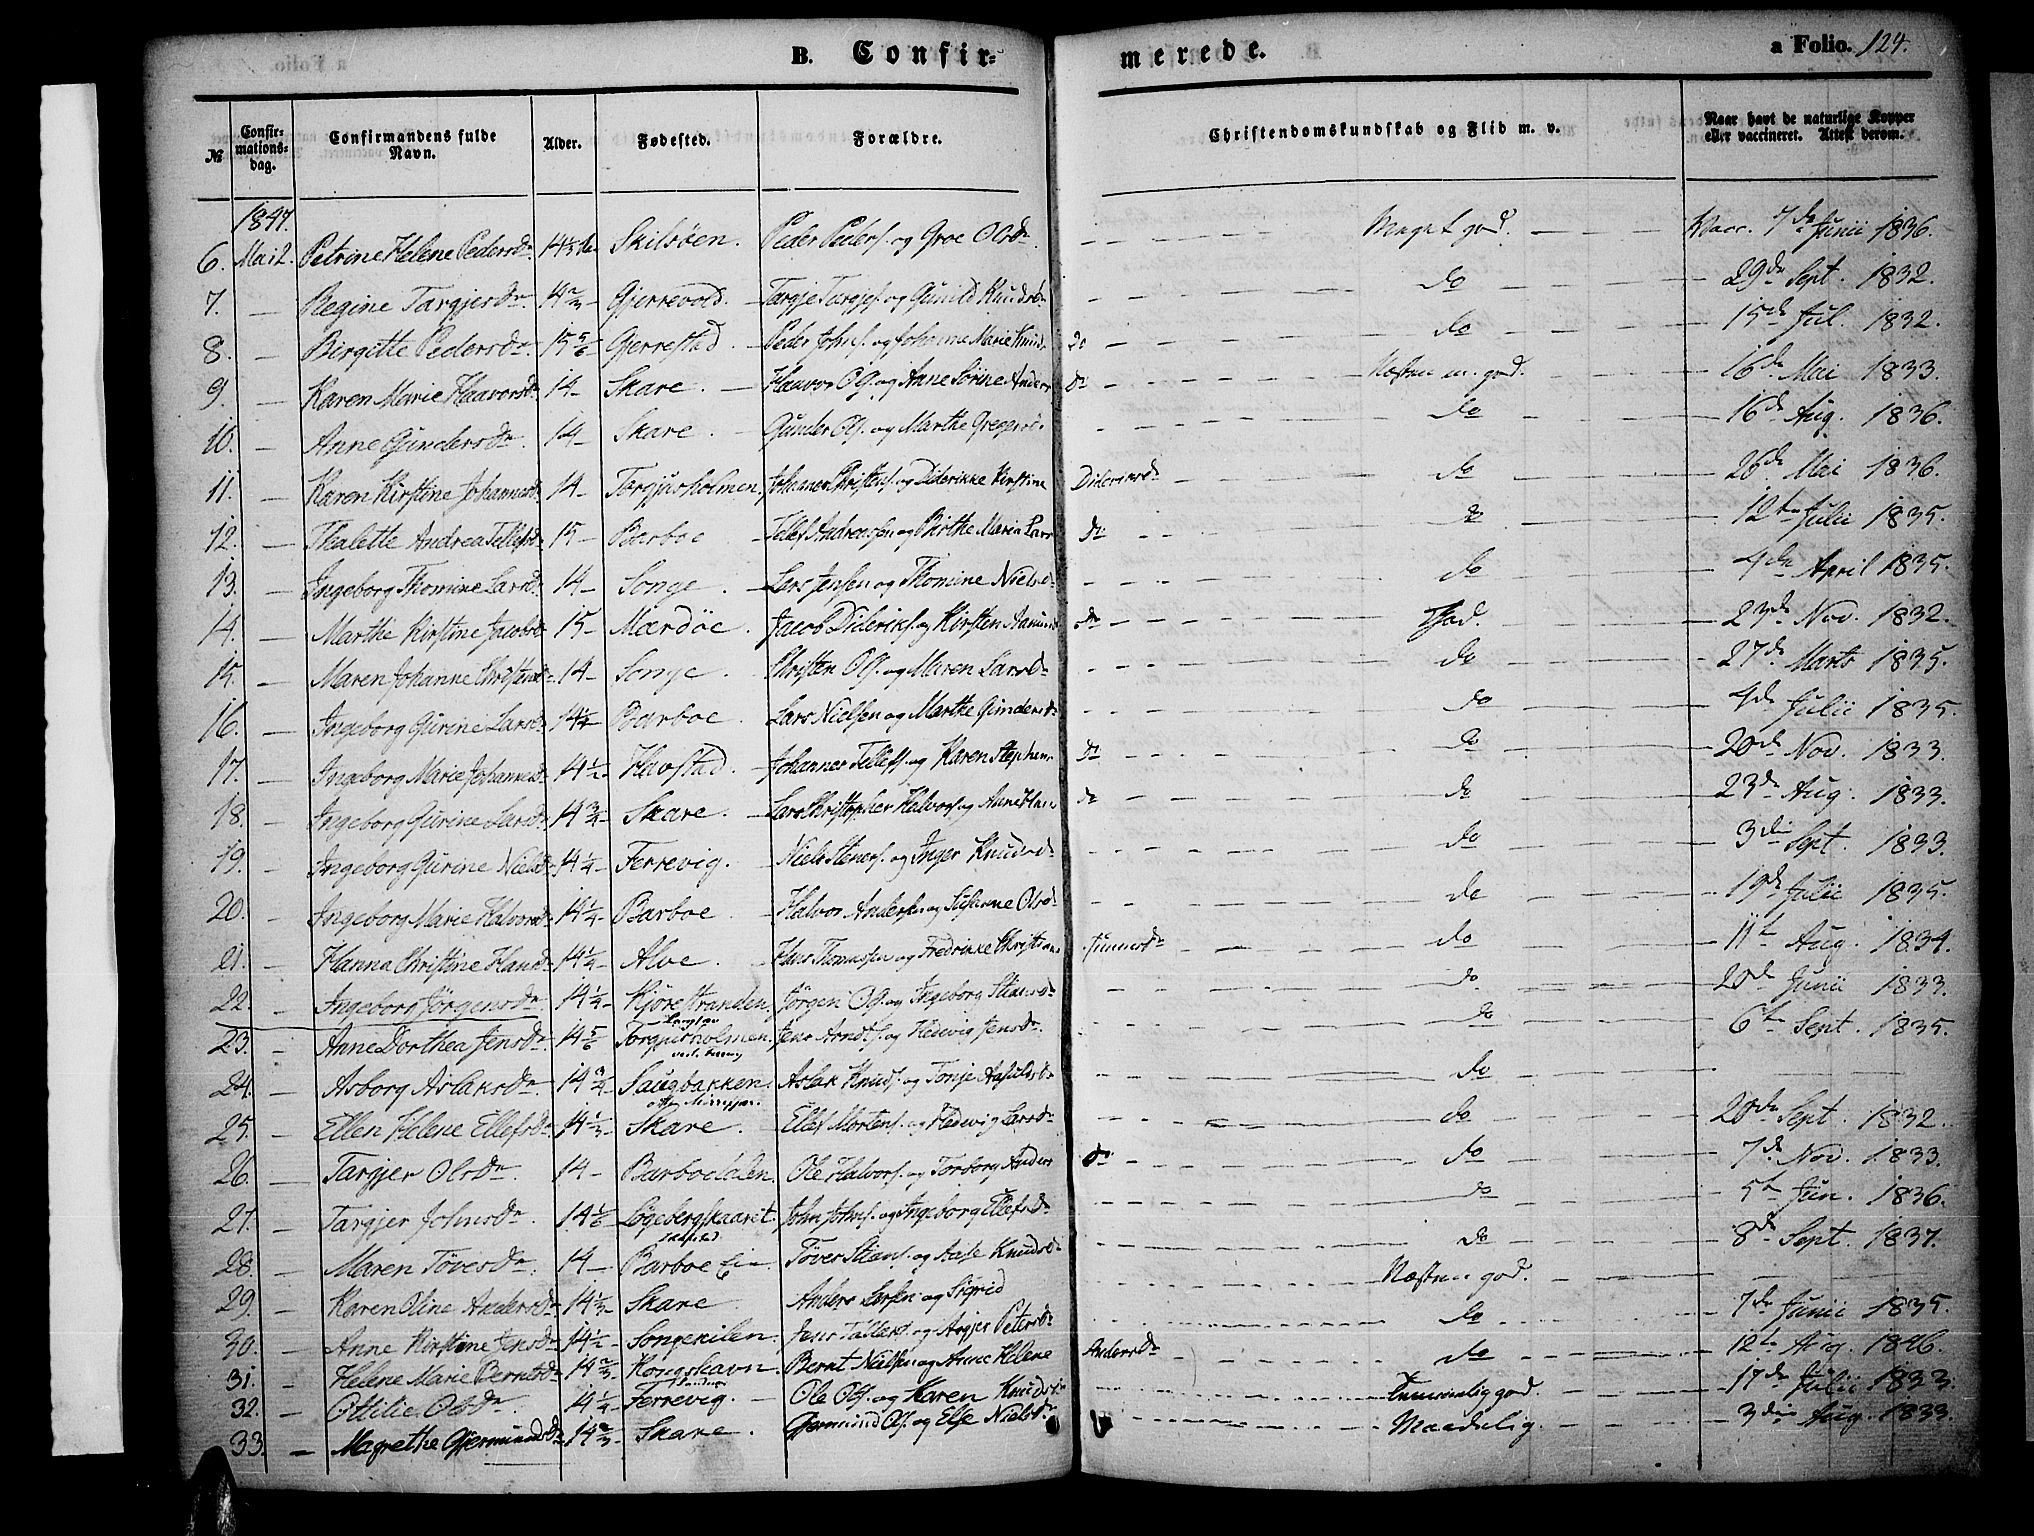 B. Confir- merede. a Folio. 124.
№ Confirmationsdag. Confirmandens fulde Navn. Alder. Fødested. Forældre. Christendomskundskab og Flid m. v. Naar havt de naturlige Kopper eller vaccineret. Attest derom.
1847.
6. Mai 2. Petrine Helene Pedersdr. 14 Skilsöen. Peder Peders. og Groe Olsdr. Meget god. Vacc. 7de Junii 1836.
7. — Regine Targjersdr. 14 2/3 Gjerrevold. Targje Targjes. og Gunild Knudsdr do 29de Sept. 1832.
8. — Birgitte Pedersdr. 15 5/6 Gjerrestad. Peder Johns. og Johanne Marie Knuds do do 15de Jul. 1832.
9. — Karen Marie Haavorsdr. 14 Skare. Haavor Ols. og Anne Sörine Anders dr Næsten m. god. 16de Mai 1833.
10. — Anne Gundersdr. 14 Skare. Gunder Ols. og Marthe Gregersdr. do 16de Aug. 1836.
11. — Karen Kirstine Johannesdr. 14 Torgjusholmen. Johannes Christens. og Diderikke Kirstine Dideriksdr do 26de Mai 1836.
12. — Thalette Andrea Tellefsdr 15 Barboe Tellef Andreassen og Birthe Maria Lars dr do 12te Julii 1835.
13. — Ingeborg Thomine Larsdr. 14 Songe. Lars Jensen og Thomine Nielsdr. do 4de April 1835.
14. — Marthe Kirstine Jacobsdr 15 Mærdöe. Jacob Dideriks. og Kirsten Aamunds dr God. 23de Nov. 1832.
15. — Maren Johanne Christensdr 14 Songe. Christen Ols. og Maren Larsdr do 27de Marts 1835.
16. — Ingeborg Gurine Larsdr 14 1/4 Barboe. Lars Nielsen og Marthe Gundersdr do 4de Julii 1835.
17. — Ingeborg Marie Johannesdr 14 1/2 Havstad. Johannes Tellefs. og Karen Stephens dr do 20de Nov. 1833.
18. — Ingeborg Gurine Larsdr 14 3/4 Skare. Lars Christopher Halvors. og Anne Hans dr do 23de Aug. 1833.
19. — Ingeborg Gurine Nielsdr 14 1/4 Ferrevig. Niels Steners. og Inger Knudsdr do 3die Sept. 1833.
20. — Ingeborg Marie Halvorsdr 14 1/4 Barboe. Halvor Andersen og Susanne Olsdr do 19de Julii 1835.
21. — Hanna Christine Hansdr 14 1/4 Alve. Hans Thomassen og Fredrikke Christiane Tunnesdr do 11te Aug. 1834.
22. — Ingeborg Jörgensdr. 14 1/4 Kjörestranden. Jörgen Ols. og Ingeborg Stiansdr do 20de Junii 1833.
23. — Anne Dorthea Jensdr. 14 5/6 Torgjusholmen. Jens Arndts. og Hedvig Jensdr. do 6te Sept. 1835.
24. — Asborg Aslaksdr 14 3/4 Saugbakken. Aslak Knuds. og Tonje Aasulvsdr do
25. — Ellen Helene Ellefsdr. 14 1/3 Skare. Ellef Mortens. og Hedevig Larsdr do 20de Sept. 1832.
26. — Targjer Olsdr. 14 Barboedalen. Ole Halvors. og Torborg Anders dr do 7de Nov. 1833.
27. — Targjer Johnsdr. 14 1/6 Lögebergskaaret. John Johns. og Ingeborg Ellefsdr do 5te Jun. 1836.
28. — Maren Tövesdr. 14 Barboe Eie Töver Stians. og Aase Knudsdr do 8de Sept. 1837.
29. — Karen Oline Andersdr 14 1/3 Skare Anders Larsen og Sigrid Næsten god.
30. — Anne Kirstine Jensdr 14 1/2 Songekilen. Jens Tallaks. og Asgjer Petersdr do 7de Junii 1835.
31. — Helene Marie Berntsdr 14 2/3 Kongshavn. Bernt Nielsen og Anne Helene Andersdr do 12te Aug. 1846.
32. — Ottilie Olsdr. 14 1/4 Ferrevig. Ole Ols. og Karen Knudsdr Temmelig god. 17de Julii 1833.
33. — Magrethe Gjermundsdr 14 2/3 Skare. Gjermund Ols. og Else Nielsdr Maadelig. 3die Aug. 1833.